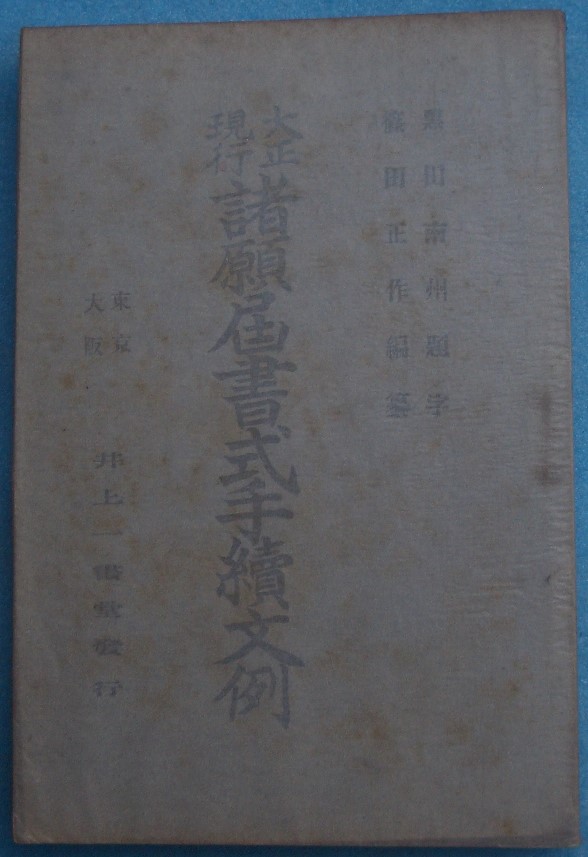 田南州題字
田正作編纂
大正
現行
諸願屆書式手續文例
東京
大阪
井上一書堂發行